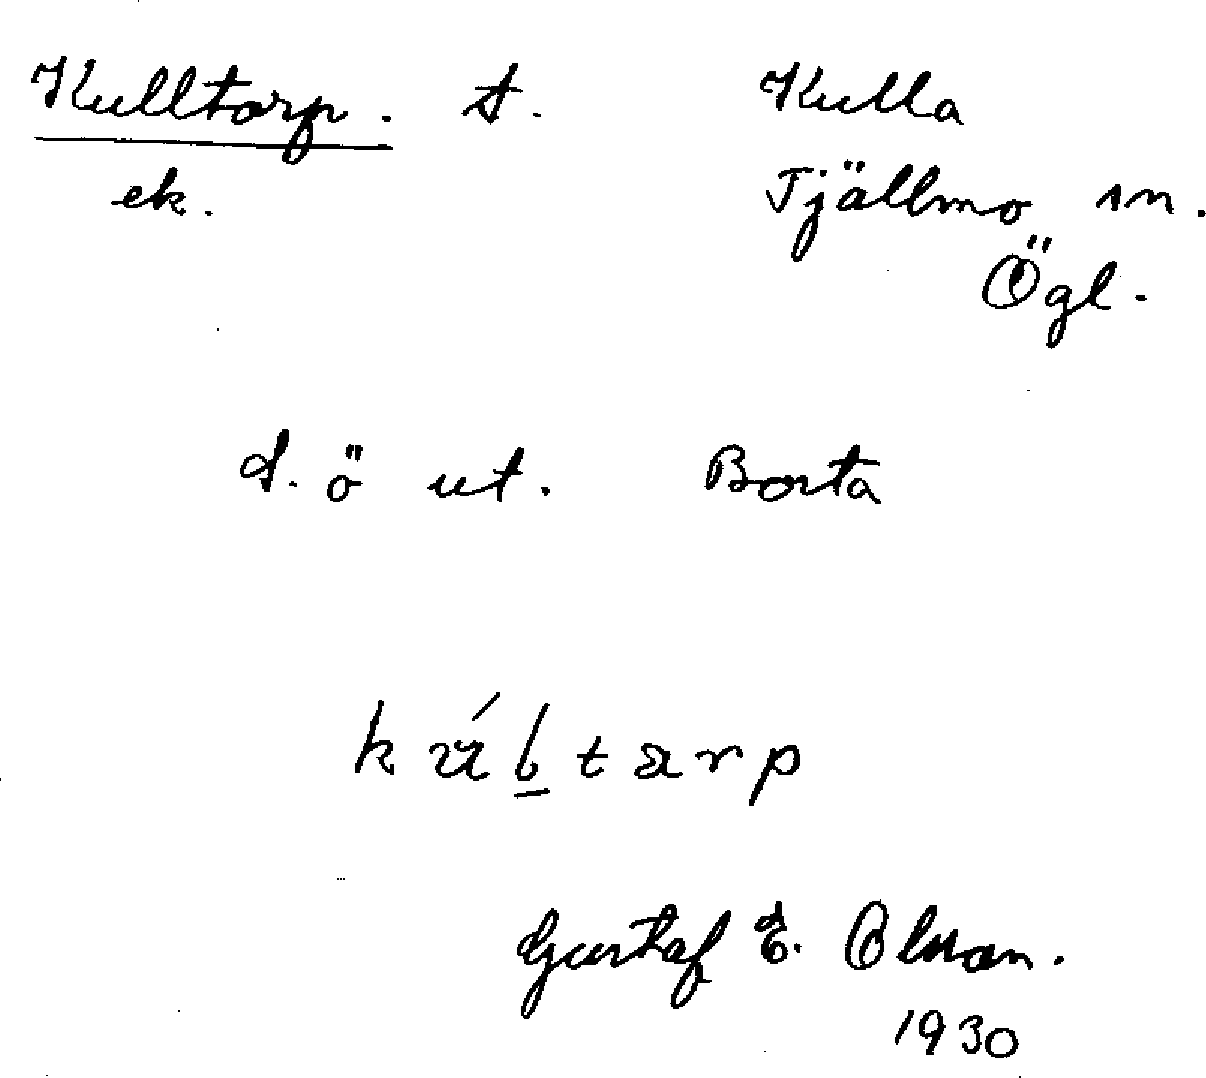 Kulltorp. t. Kulla
ek. Tjällmo sn.
Ögl.
d. ö ut. Borta
Gustaf E. Olsson.
1930